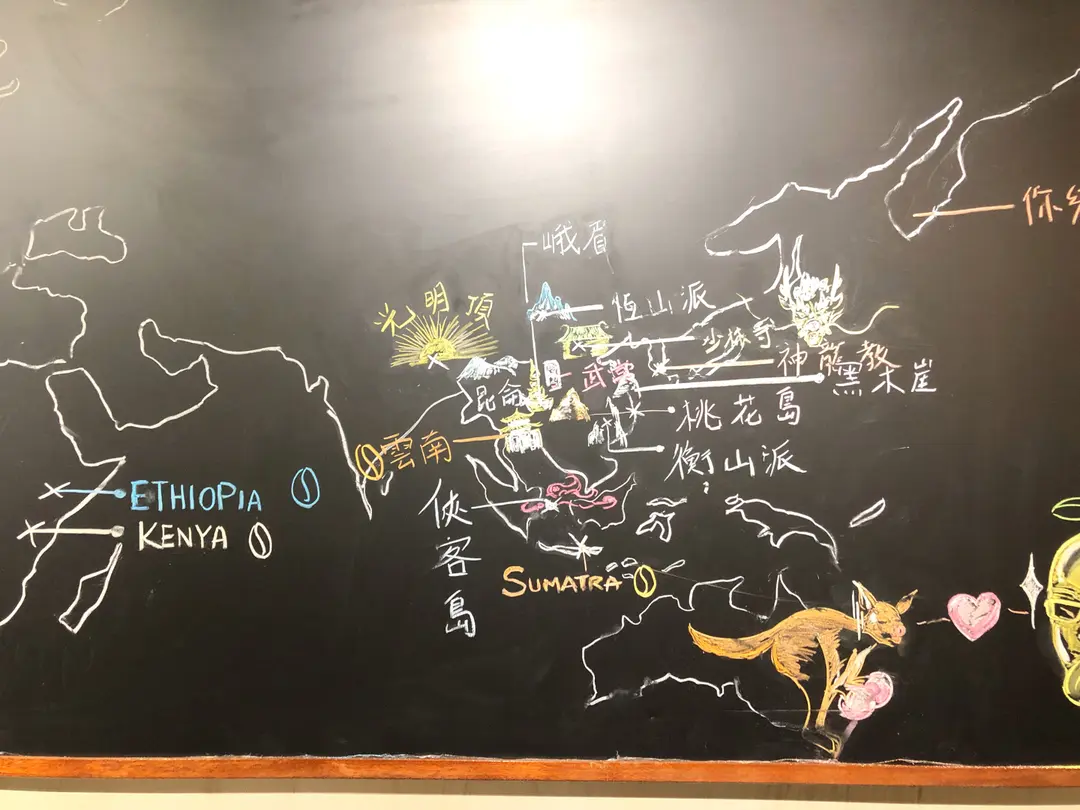 峨眉
你
光明頂
恆山派
少林寺
神龍教
黑木崖
昆侖
武當
桃花島
雲南
衡山派
俠客島
ETHIOPIA
KENYA
SUMATRA